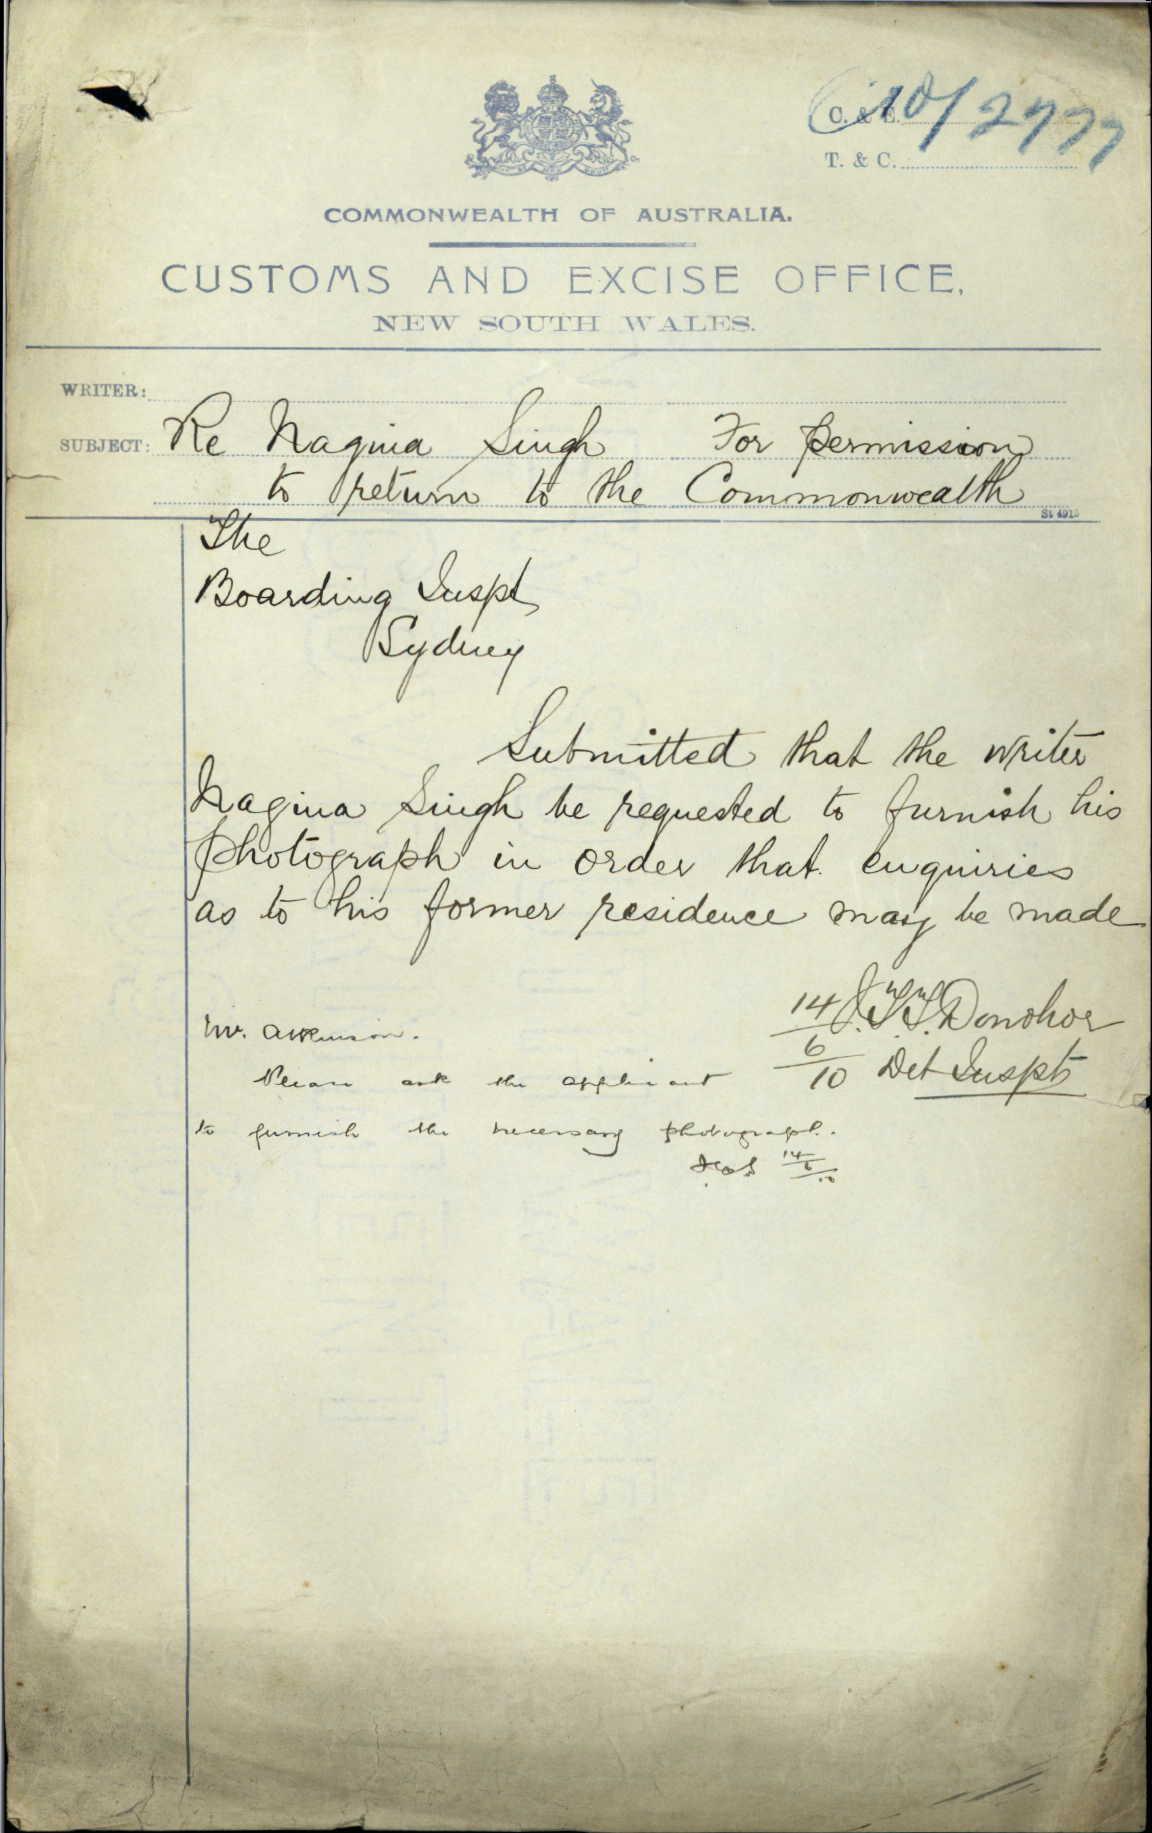 C. & E. 10/2777
T. & C.
COMMONWEALTH OF AUSTRALIA.
CUSTOMS AND EXCISE OFFICE,
NEW SOUTH WALES.
WRITER:
SUBJECT: Re Nagina Singh For permission
to return to the Commonwealth
St 4915
The
Boarding Inspt
Sydney
Submitted that the writer
Nagina Singh be requested to furnish his
photograph in order that enquiries
as to his former residence may be made
14/6/10 J.T.T. Donohoe
Det Inspt
Mr. Atkinson.
Please ask the applicant
to furnish the necessary photograph.
14/6/10